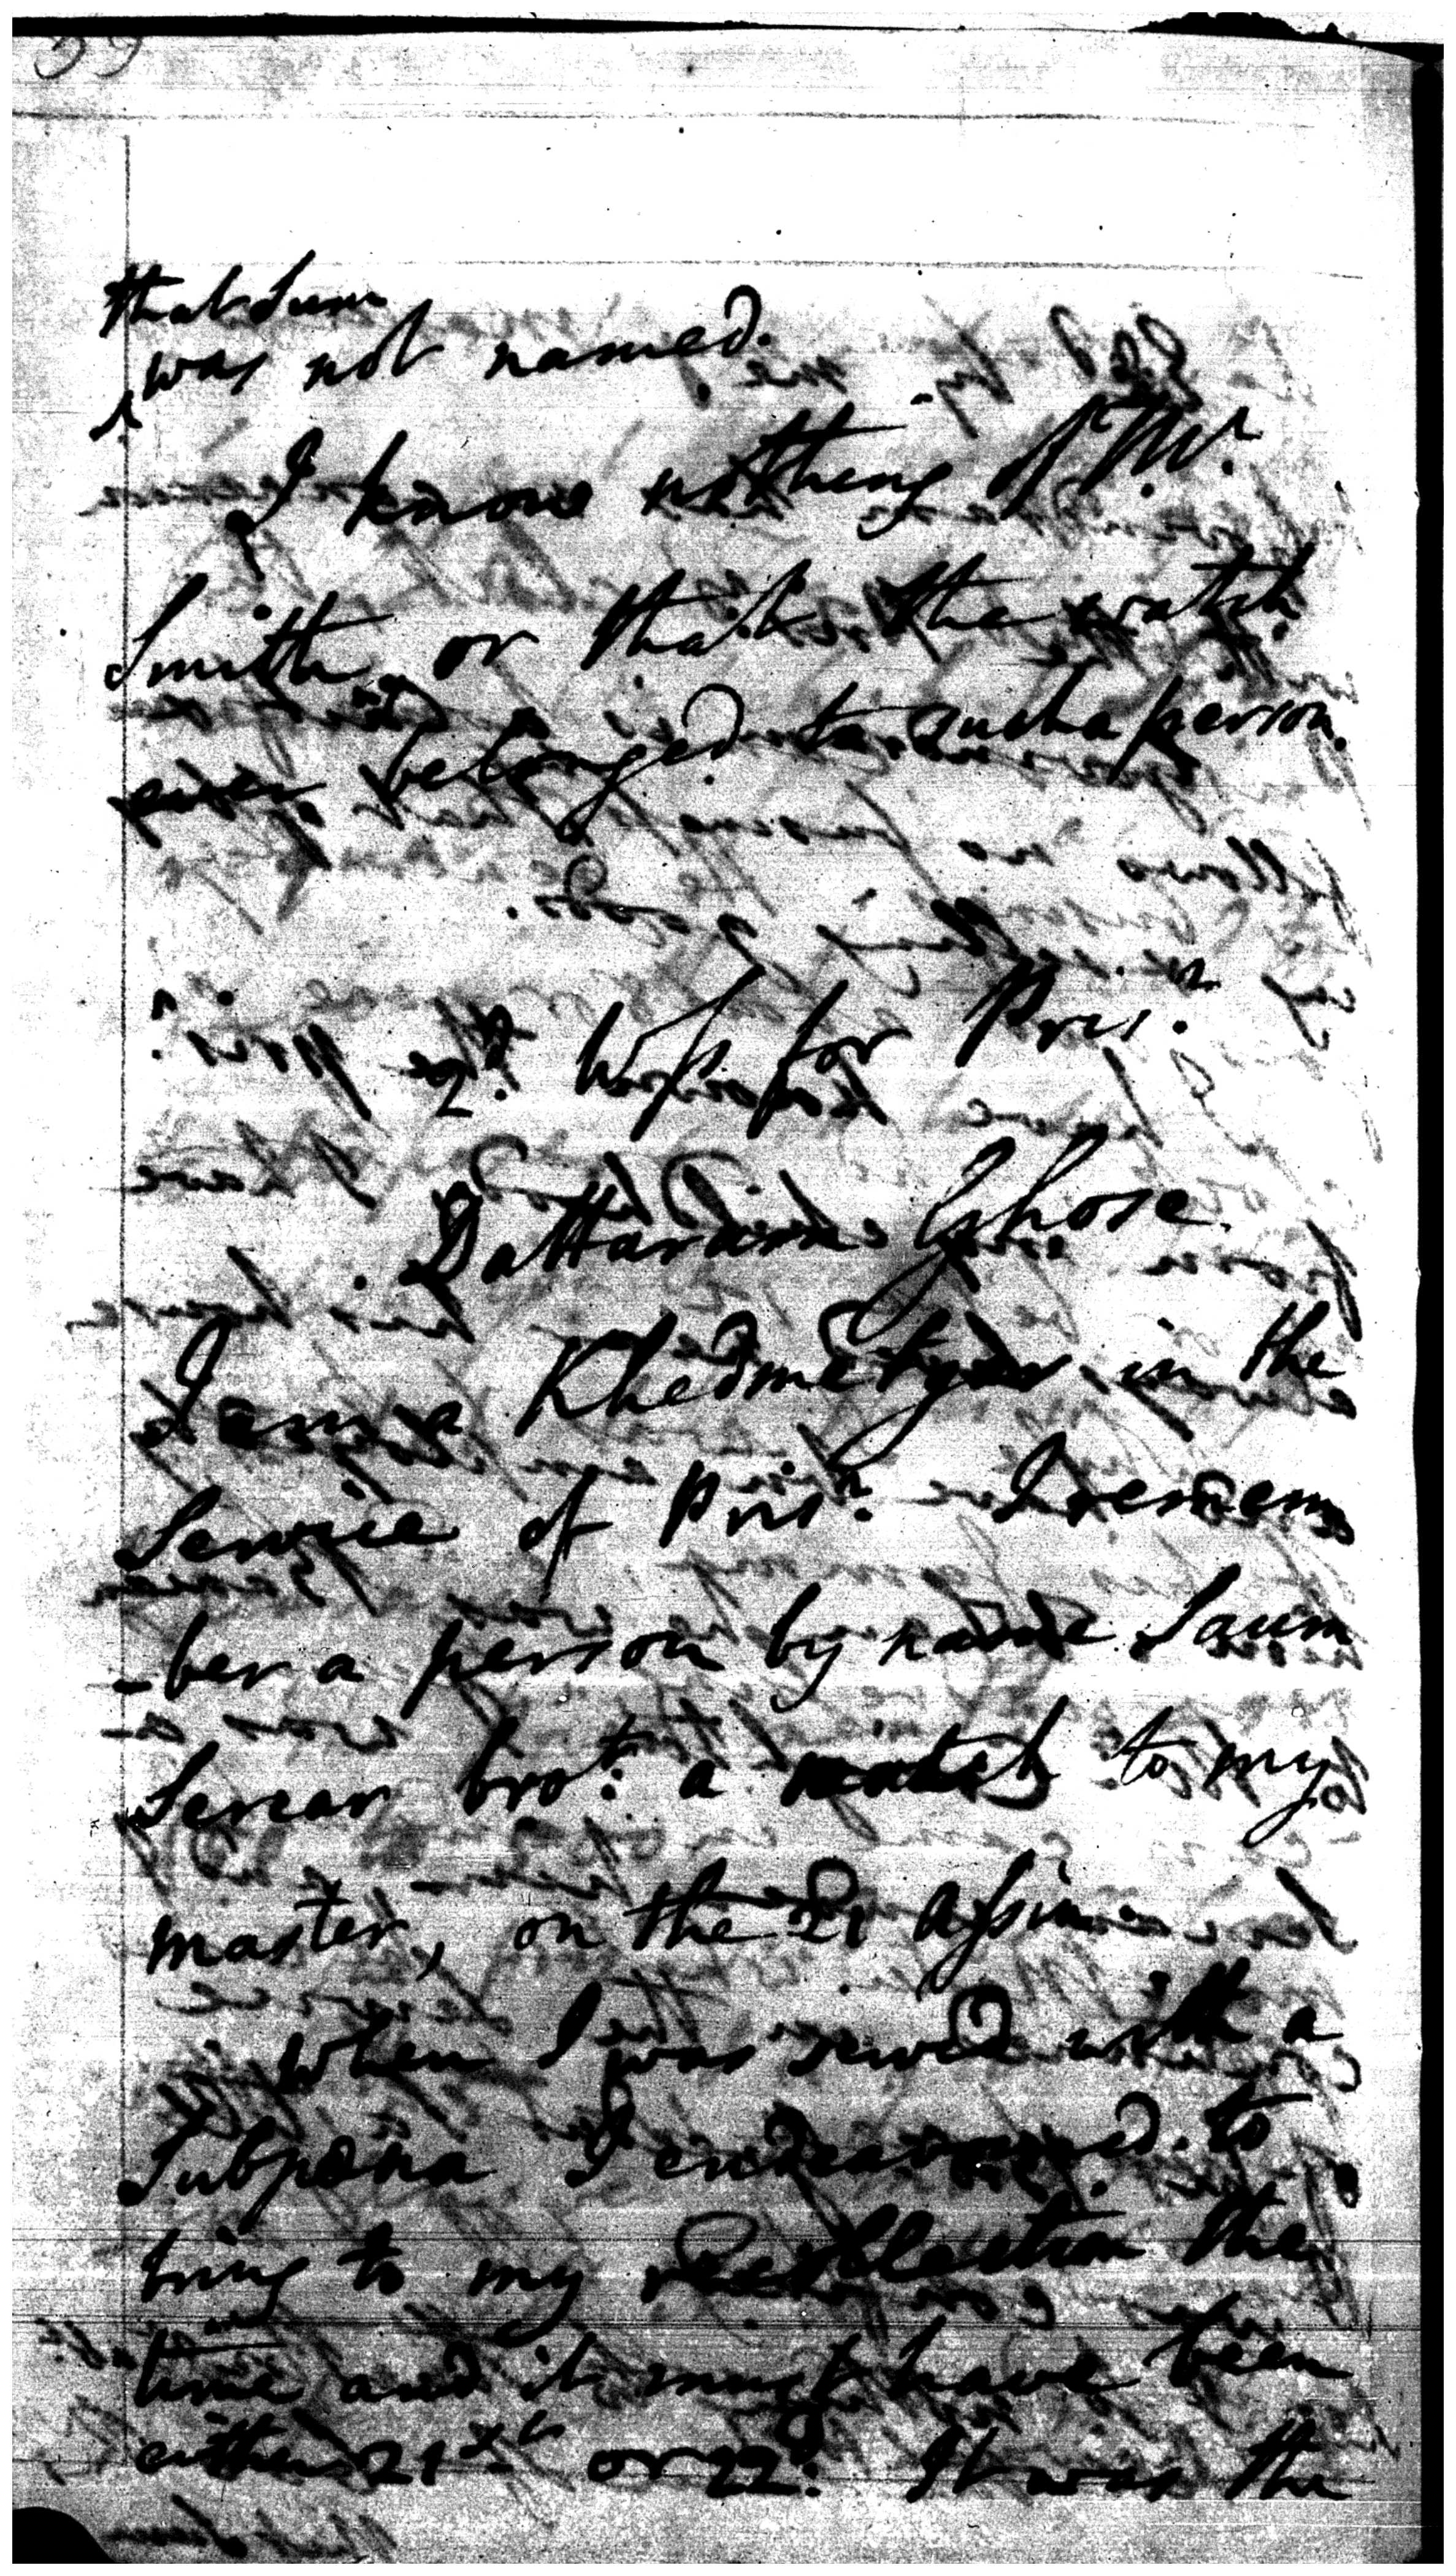 39
that Sum
was not named.
I know nothing of Mr.
Smith or that the watch
ever belonged to such a person.
2d. Wss for Prisr.
Dattaram Ghose.
I am a Khedmetgar in the
Service of Prisr. I remem
-ber a person by name Saum
Sercar brot. a watch to my
master, on the 21 Assin
when I was served with a
Subpœna I endeavoured to
bring to my recollection the
time and it must have been
either 21st or 22d. It was the